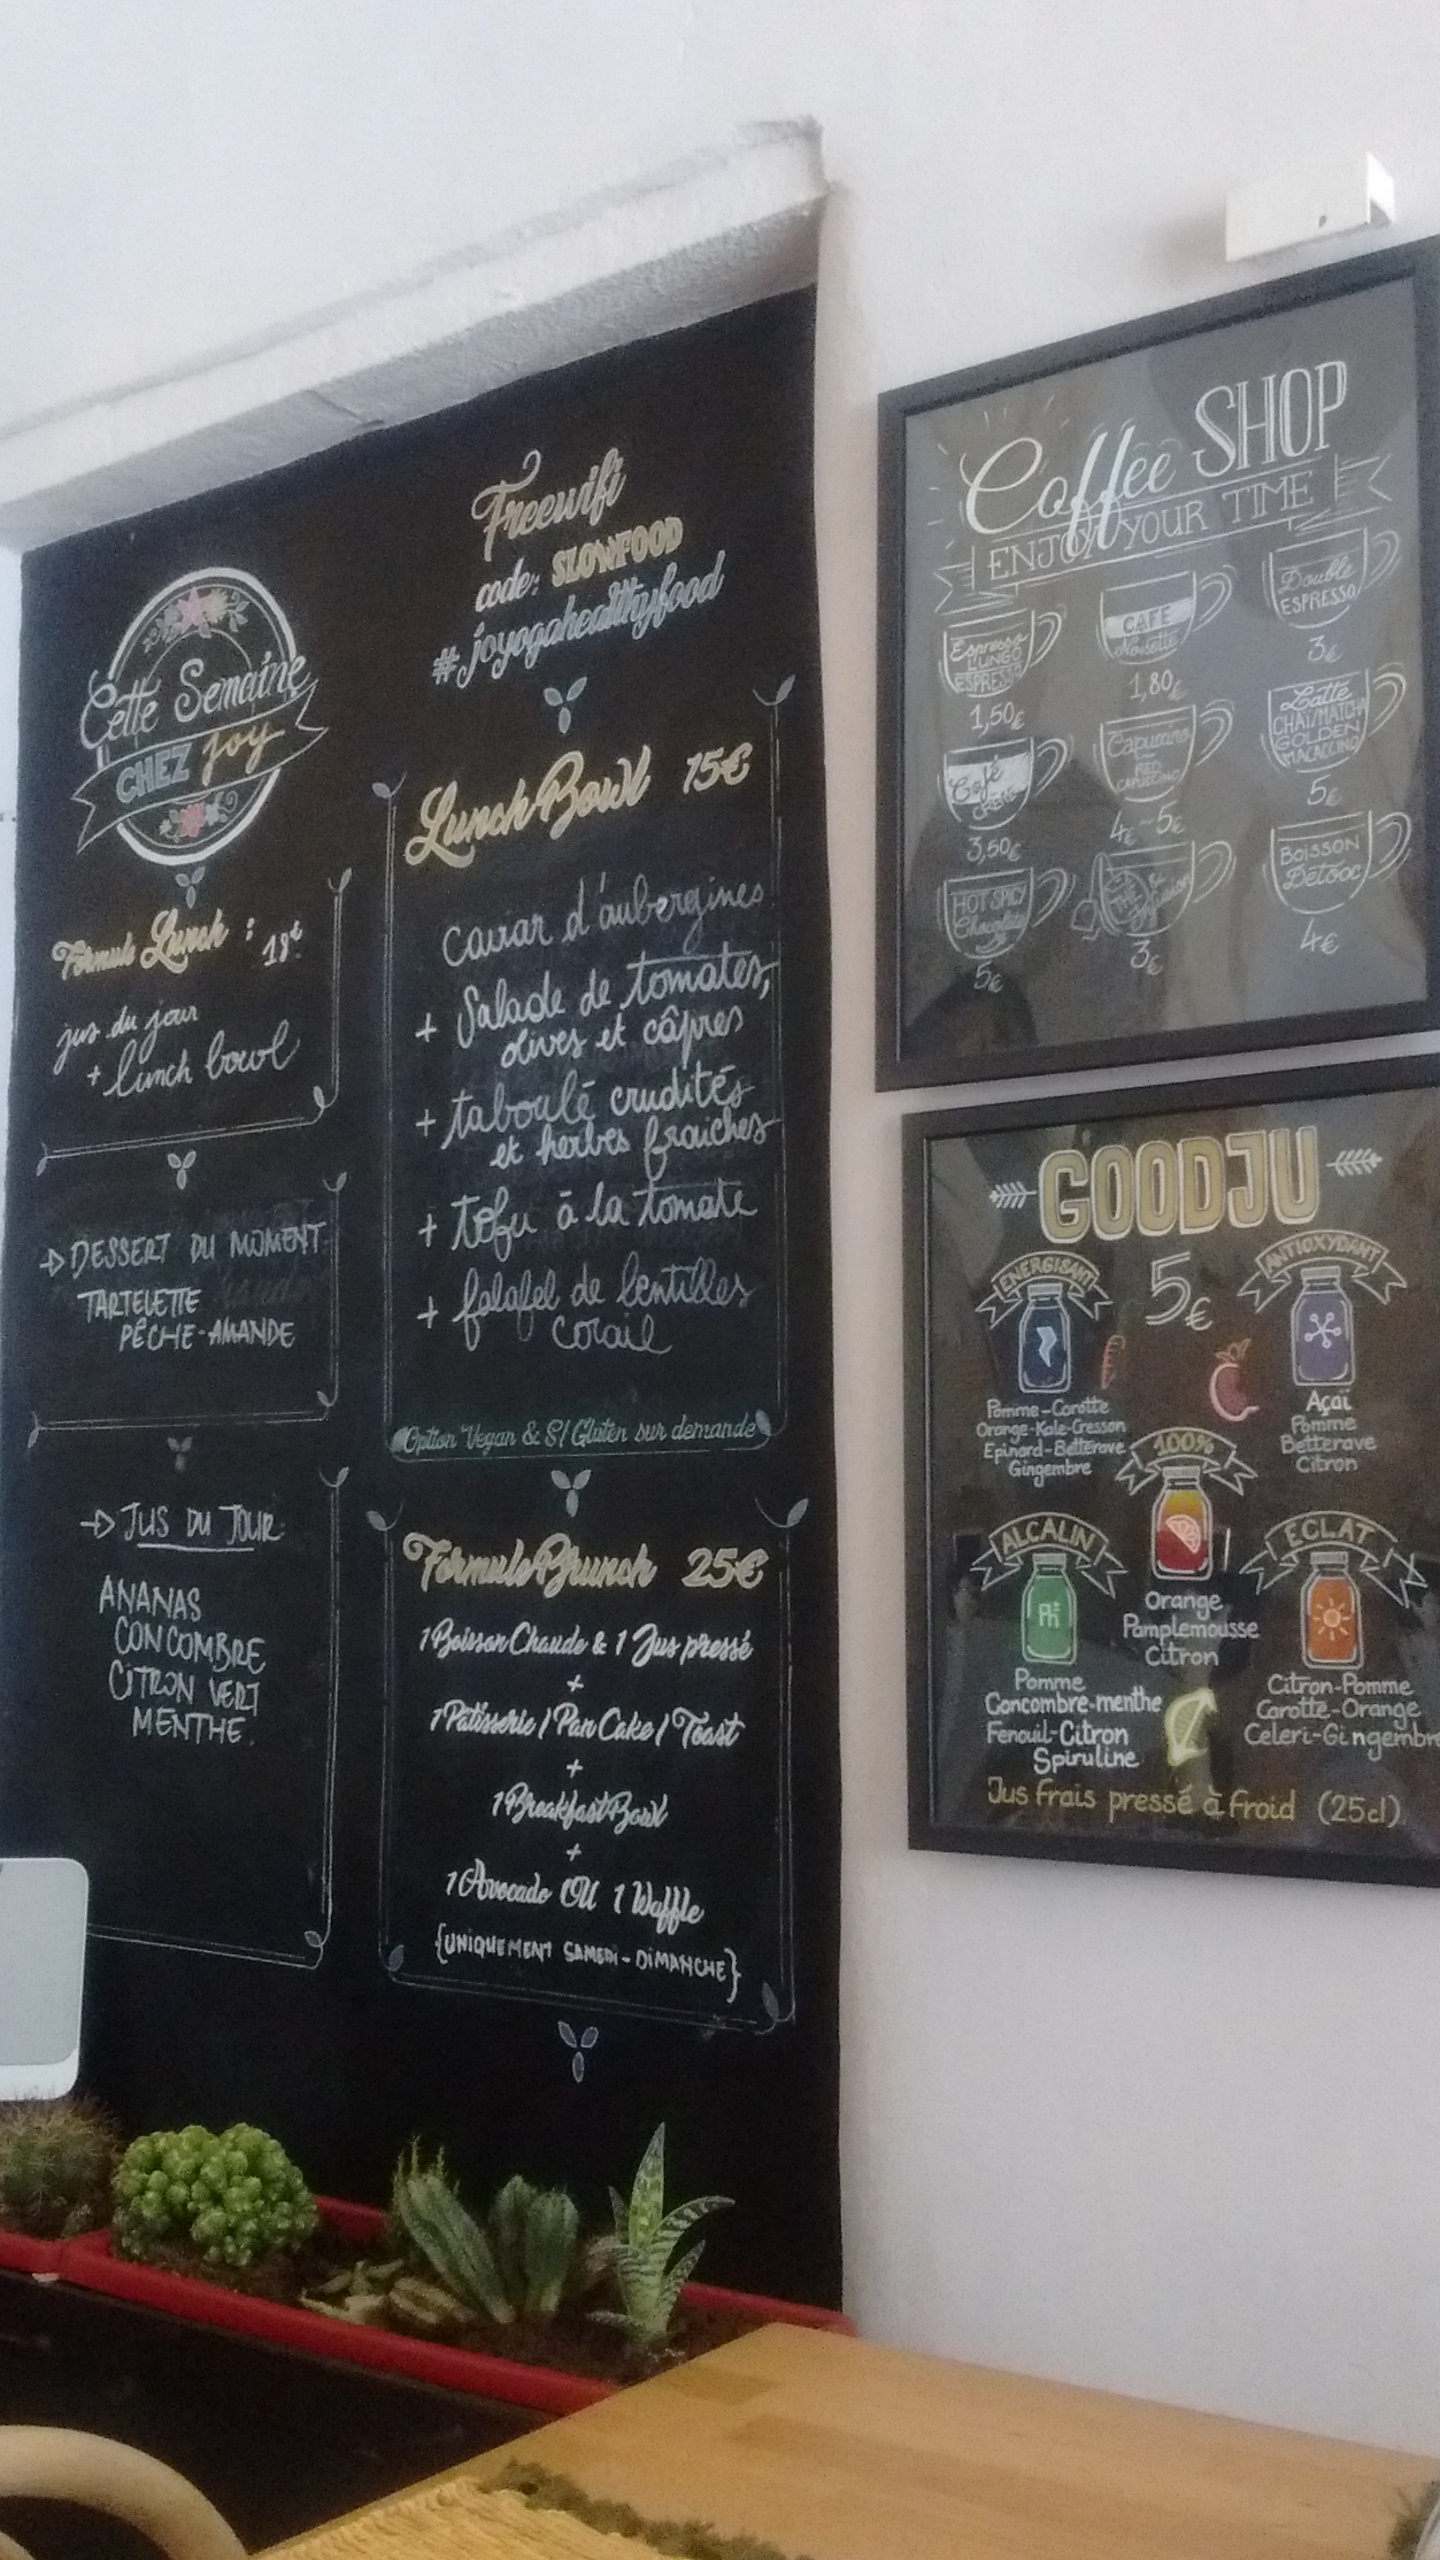 Cette Semaine
CHEZ joy
Formule Lunch : 18€
jus du jour
+ lunch bowl
DESSERT DU MOMENT
TARTELETTE
PÊCHE-AMANDE
JUS DU JOUR:
ANANAS
CONCOMBRE
CITRON VERT
MENTHE.
Freewifi
code: SLOWFOOD
#joyogahealthyfood
Lunch Bowl 15€
caviar d'aubergines
+ Salade de tomates,
olives et câpres
+ taboulé crudités
et herbes fraiches
+ tofu à la tomate
+ falafel de lentilles
corail
Option Vegan & S/Gluten sur demande
Formule Brunch 25€
1 Boisson Chaude & 1 Jus pressé
+
1 Pâtisserie / Pan Cake / Toast
+
1 Breakfast Bowl
+
1 Avocado OU 1 Waffle
{UNIQUEMENT SAMEDI - DIMANCHE}
Coffee SHOP
ENJOY YOUR TIME
Espresso
LUNGO
ESPRESSO
1,50€
CAFE
Noisette
1,80€
Double
ESPRESSO
3€
Café
CRÈME
3,50€
Capuccino
RED
CAPUCCINO
4€~5€
Latte
CHAI/MATCHA
GOLDEN
MACACCINO
5€
HOT SPICY
Chocolate
5€
THE &
Infusion
3€
BOISSON
Détooc
4€
GOODJU
5€
ENERGISANT
Pomme-Carotte
Orange-Kale-Cresson
Epinard-Betterave
Gingembre
ANTIOXYDANT
Açaï
Pomme
Betterave
Citron
100%
Orange
Pamplemousse
Citron
ALCALIN
Ph
Pomme
Concombre-menthe
Fenouil-Citron
Spiruline
ECLAT
Citron-Pomme
Carotte-Orange
Celeri-Gingembre
Jus frais pressé à froid (25cl)